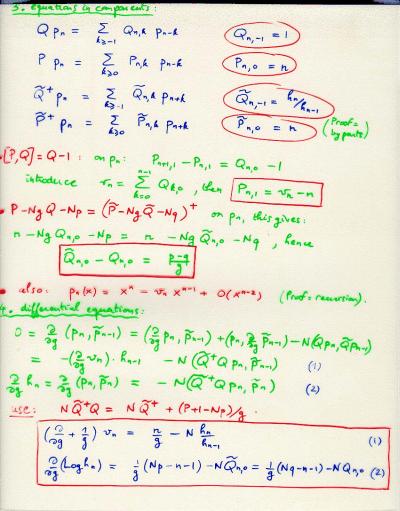 3. equations in components:
Q pₙ = Σ_{k≥-1} Q_{n,k} p_{n-k}    Q_{n,-1} = 1
P pₙ = Σ_{k≥0} P_{n,k} p_{n-k}    P_{n,0} = n
Q̃⁺ pₙ = Σ_{k≥-1} Q̃_{n,k} p_{n+k}    Q̃_{n,-1} = hₙ/h_{n-1}
P̃⁺ pₙ = Σ_{k≥0} P̃_{n,k} p_{n+k}    P̃_{n,0} = n    (Proof= by parts)
• [P,Q] = Q-1 : on pₙ: P_{n+1,1} - P_{n,1} = Q_{n,0} - 1
introduce vₙ = Σ_{k=0}^{n-1} Q_{k,0}, then P_{n,1} = vₙ - n
• P - NgQ - Np = (P̃ - NgQ̃ - Nq)⁺ on pₙ, this gives:
n - NgQ_{n,0} - Np = n - NgQ̃_{n,0} - Nq, hence
Q̃_{n,0} - Q_{n,0} = (p-q)/g
• also: pₙ(x) = xⁿ - vₙ xⁿ⁻¹ + O(xⁿ⁻²) (Proof = recursion).
4. differential equations:
0 = ∂/∂g (pₙ, p̃_{n-1}) = (∂/∂g pₙ, p̃_{n-1}) + (pₙ, ∂/∂g p̃_{n-1}) - N(Q pₙ, Q̃ p̃_{n-1})
= -(∂/∂g vₙ) · h_{n-1} - N(Q̃⁺Q pₙ, p̃_{n-1}) (1)
∂/∂g hₙ = ∂/∂g (pₙ, p̃ₙ) = - N(Q̃⁺Q pₙ, p̃ₙ) (2)
use: N Q̃⁺Q = N Q̃⁺ + (P+1-Np)/g .
(∂/∂g + 1/g) vₙ = n/g - N hₙ/h_{n-1} (1)
∂/∂g (Log hₙ) = 1/g (Np-n-1) - NQ̃_{n,0} = 1/g (Nq-n-1) - NQ_{n,0} (2)